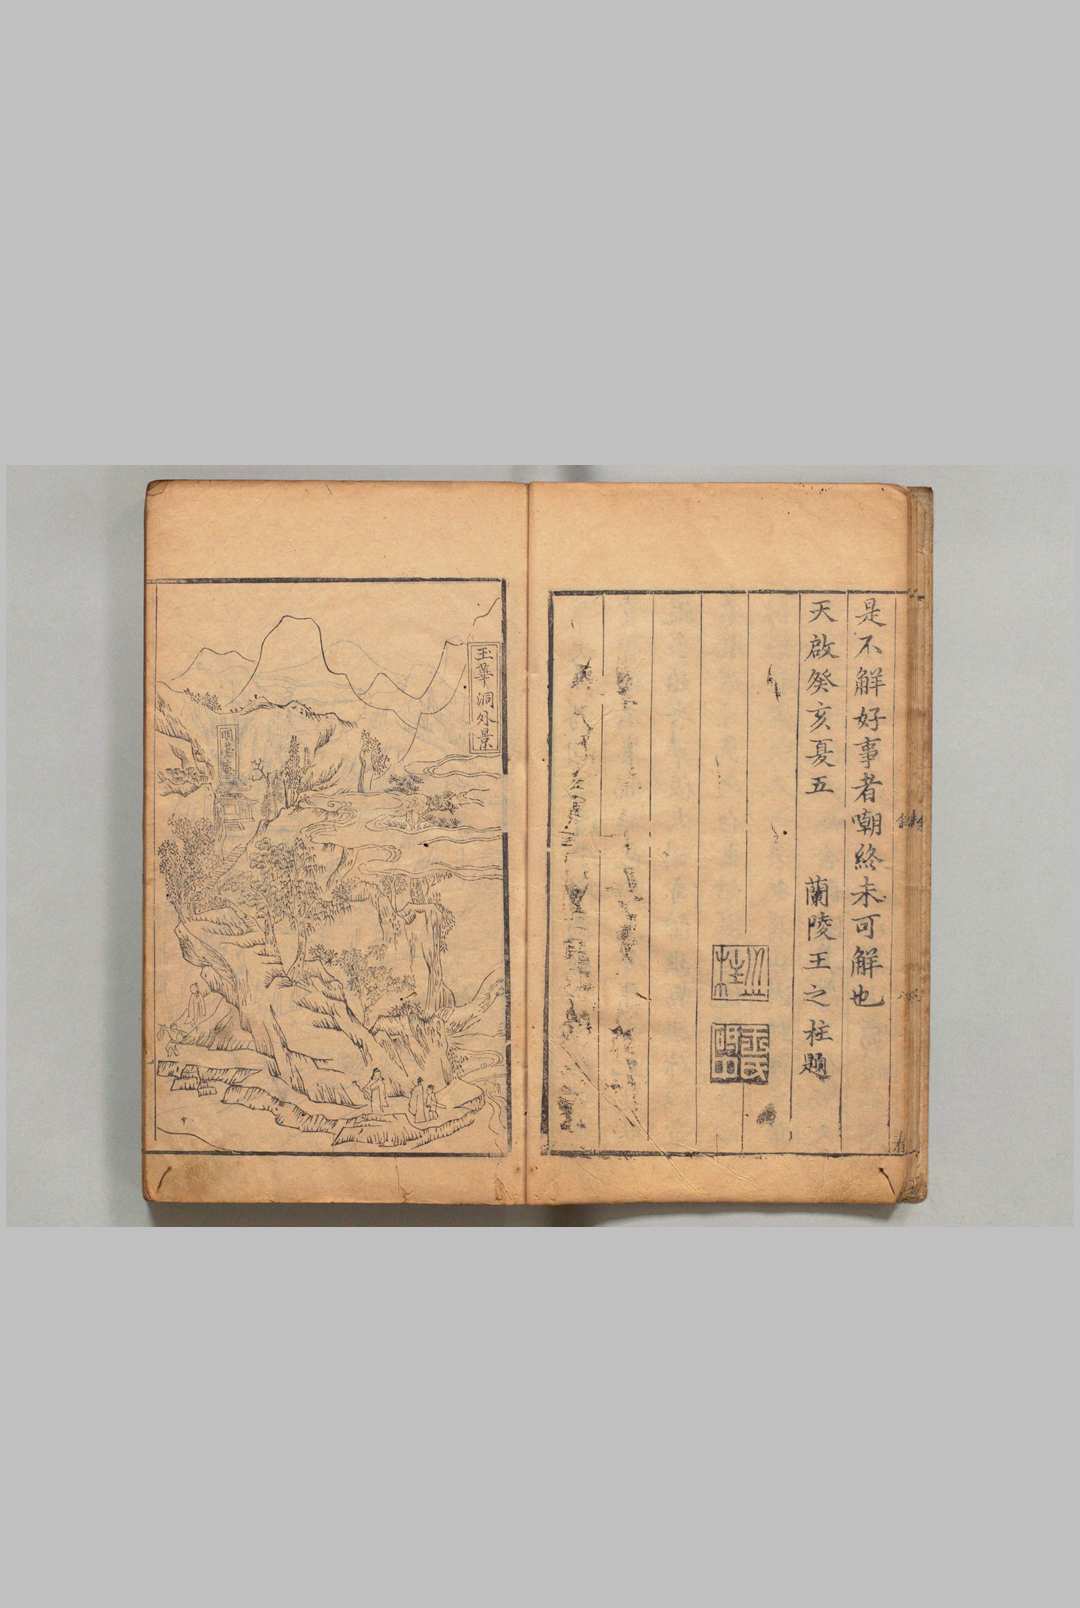 是不解好事者嘲終未可解也
天啟癸亥夏五　蘭陵王之柱題
玉華洞外景